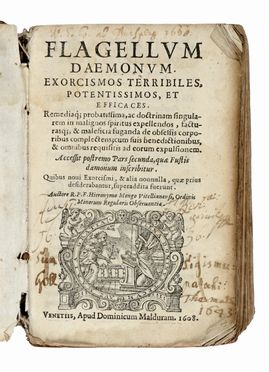 FLAGELLVM
DAEMONVM.
EXORCISMOS TERRIBILES,
POTENTISSIMOS, ET
EFFICACES.
Remediaq; probatissima, ac doctrinam singula-
rem in malignos spiritus expellendos, factu-
rasq; & maleficia fuganda de obsessis corpo-
ribus complectens; cum suis benedictionibus,
& omnibus requisitis ad eorum expulsionem.
Accessit postremo Pars secunda, quæ Fustis
dæmonum inscribitur.
Quibus noui Exorcismi, & alia nonnulla, quæ prius
desiderabantur, superaddita fuerunt.
Auctore R.P.F. Hieronymo Mengo Vitellianensi, Ordinis
Minorum Regularis Obseruantiæ.
VENETIIS, Apud Dominicum Malduram. 1608.
1643